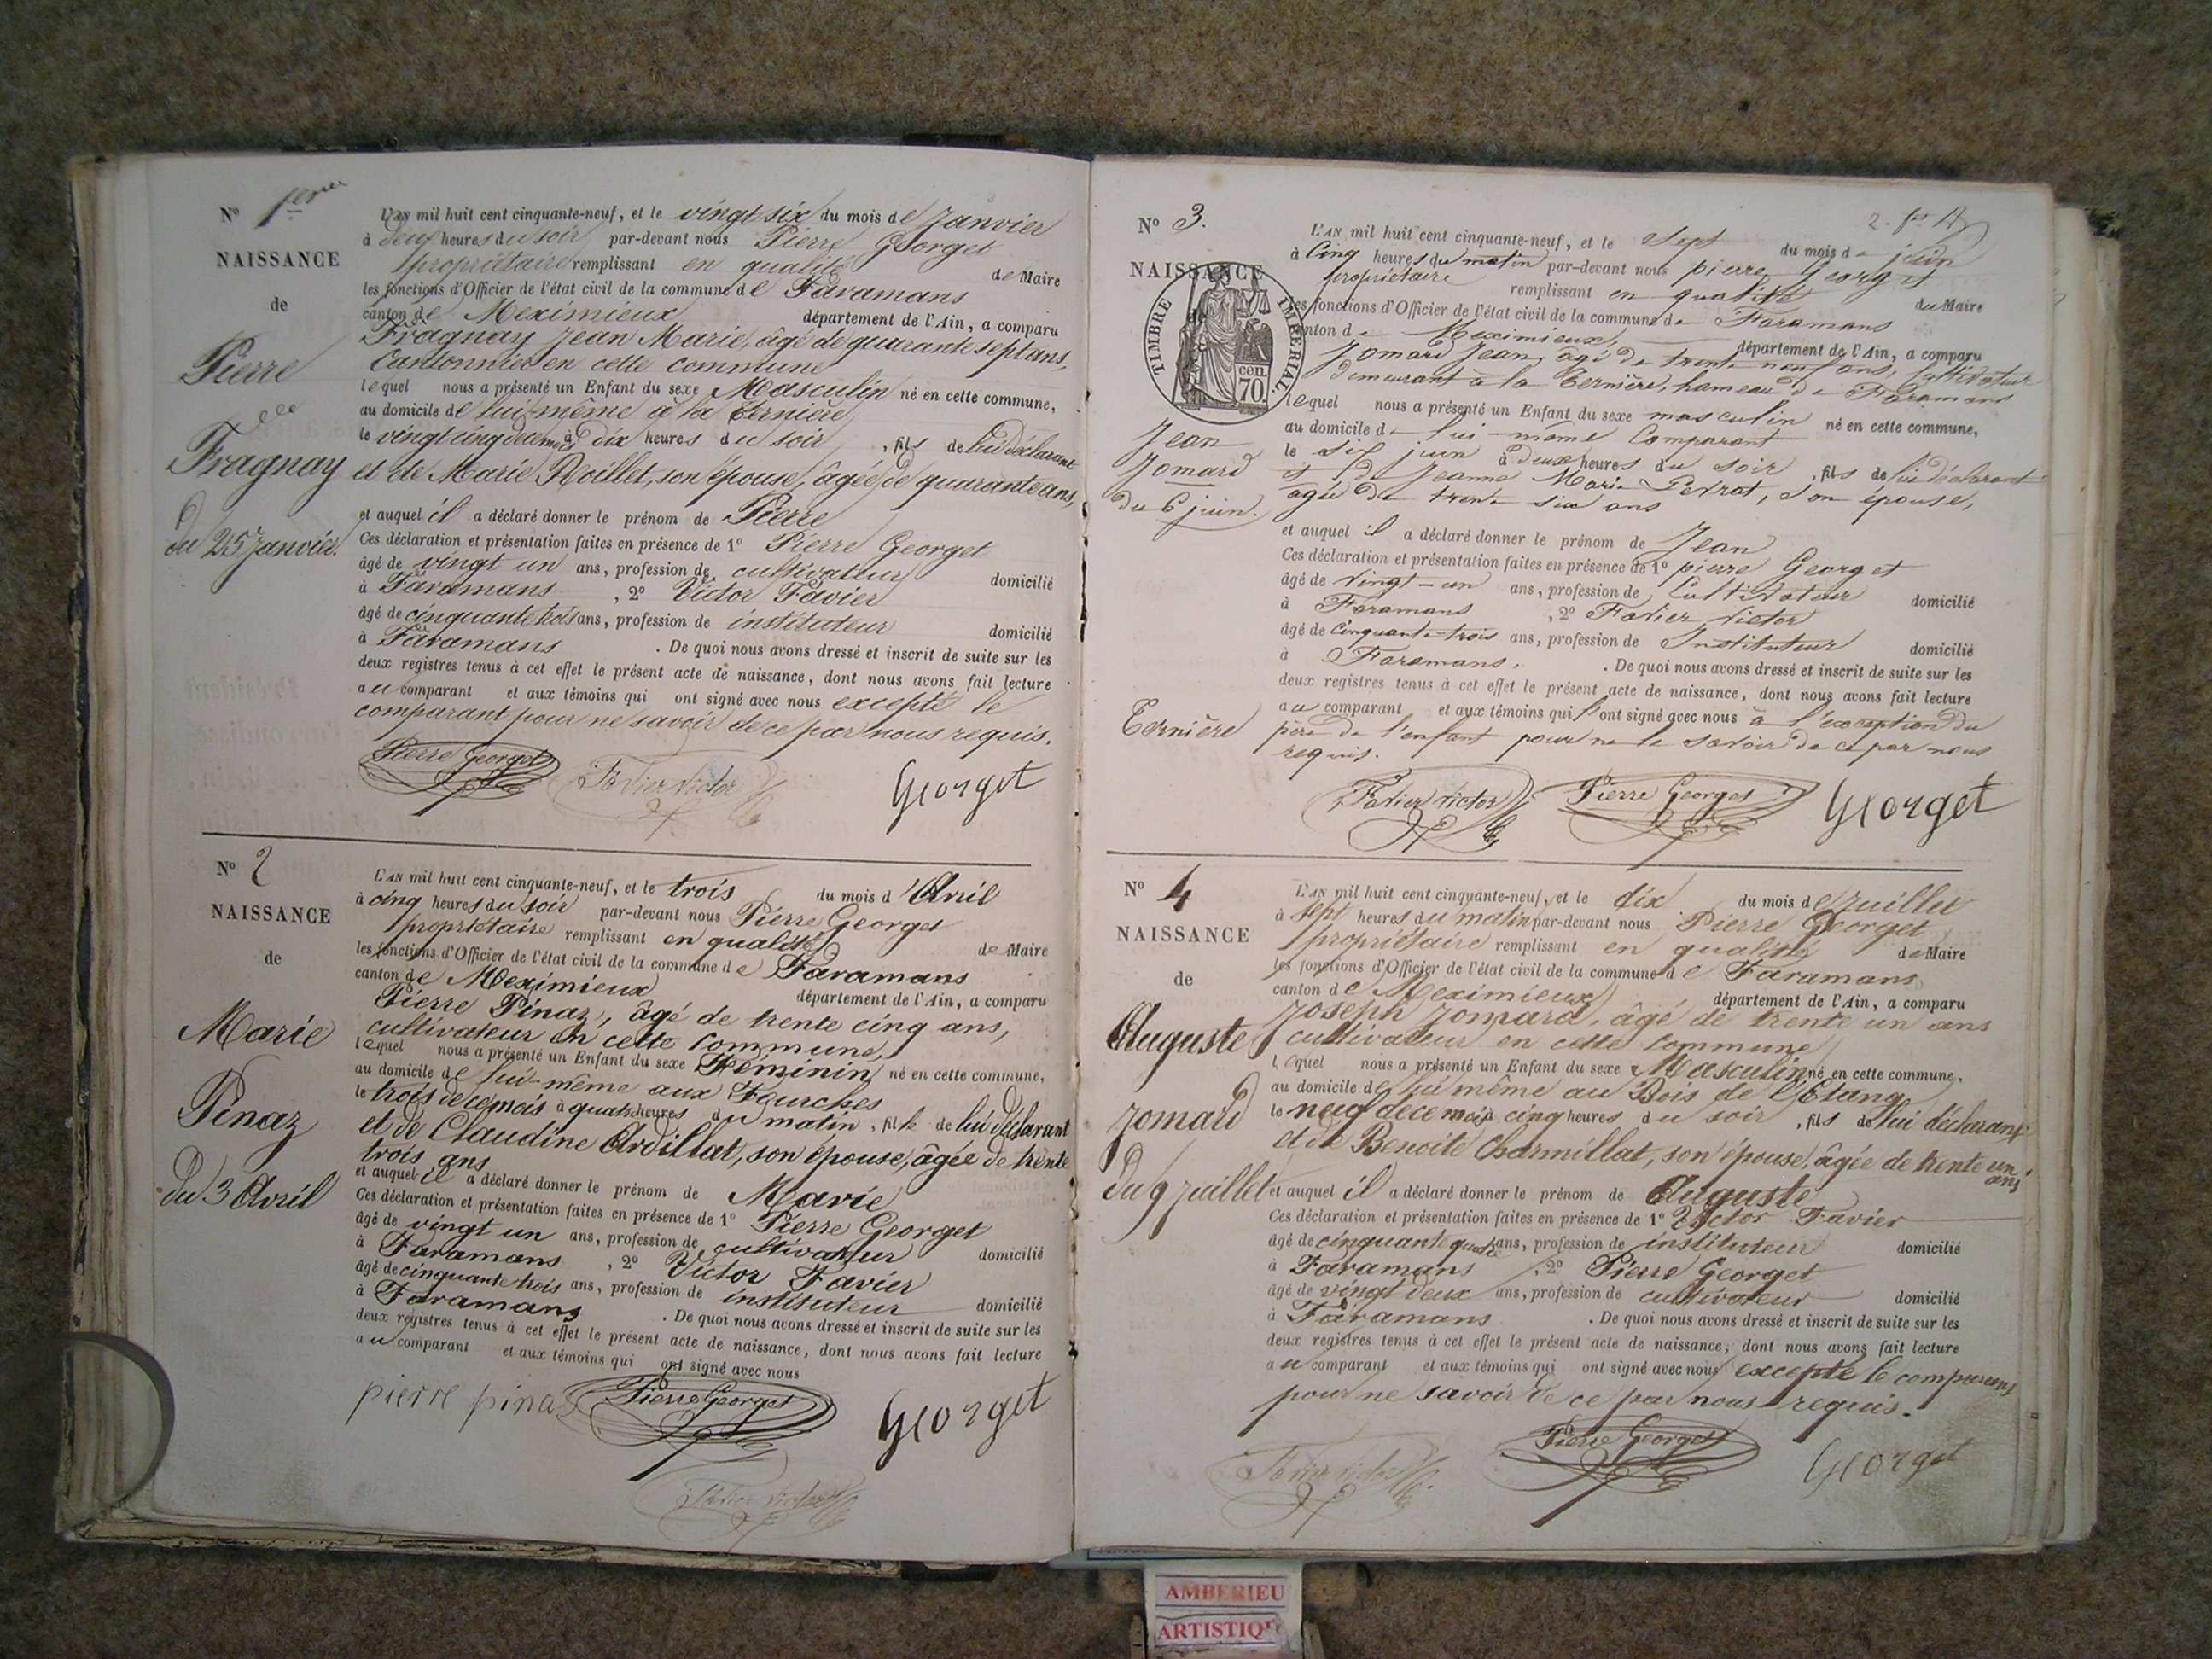 Nº 1er
NAISSANCE
de
Pierre
Fragnay
du 25 Janvier.
L'AN mil huit cent cinquante-neuf, et le vingt six du mois de Janvier
à deux heures du soir par-devant nous Pierre Georget
propriétaire remplissant en qualité de Maire
les fonctions d'Officier de l'état civil de la commune de Faramans
canton de Meximieux département de l'Ain, a comparu
Fragnay Jean Marie, âgé de quarante sept ans,
Cantonnier en cette commune
lequel nous a présenté un Enfant du sexe Masculin né en cette commune,
au domicile de lui-même à la Ternière
le vingt cinq à dix heures du soir, fils de lui déclarant
et de Marie Roillet, son épouse, âgée de quarante ans,
et auquel il a déclaré donner le prénom de Pierre
Ces déclaration et présentation faites en présence de 1º Pierre Georget
âgé de vingt un ans, profession de cultivateur domicilié
à Faramans, 2º Victor Favier
âgé de cinquante trois ans, profession de instituteur domicilié
à Faramans. De quoi nous avons dressé et inscrit de suite sur les
deux registres tenus à cet effet le présent acte de naissance, dont nous avons fait lecture
au comparant et aux témoins qui ont signé avec nous excepté le
comparant pour ne savoir de ce par nous requis.
Pierre Georget Favier Victor Georget
Nº 2
NAISSANCE
de
Marie
Pinaz
du 3 Avril
L'AN mil huit cent cinquante-neuf, et le trois du mois d'Avril
à cinq heures du soir par-devant nous Pierre Georget
propriétaire remplissant en qualité de Maire
les fonctions d'Officier de l'état civil de la commune de Faramans
canton de Meximieux département de l'Ain, a comparu
Pierre Pinaz, âgé de trente cinq ans,
cultivateur en cette commune,
lequel nous a présenté un Enfant du sexe Féminin né en cette commune,
au domicile de lui-même aux Fourches
le trois de ce mois à quatre heures du matin, fille de lui déclarant
et de Claudine Ardillat, son épouse, âgée de trente
trois ans
et auquel il a déclaré donner le prénom de Marie
Ces déclaration et présentation faites en présence de 1º Pierre Georget
âgé de vingt un ans, profession de cultivateur domicilié
à Faramans, 2º Victor Favier
âgé de cinquante trois ans, profession de instituteur domicilié
à Faramans. De quoi nous avons dressé et inscrit de suite sur les
deux registres tenus à cet effet le présent acte de naissance, dont nous avons fait lecture
au comparant et aux témoins qui ont signé avec nous
pierre pinaz Pierre Georget Georget
Favier Victor
2.
Nº 3.
NAISSANCE
TIMBRE IMPÉRIAL
70 cen.
Jean
Jomard
du 6 juin.
Ternière
L'AN mil huit cent cinquante-neuf, et le sept du mois de juin
à Cinq heures du matin par-devant nous pierre Georget
propriétaire remplissant en qualité du Maire
les fonctions d'Officier de l'état civil de la commune de Faramans
canton de Meximieux, département de l'Ain, a comparu
Jomard Jean, âgé de trente neuf ans, Cultivateur
demeurant à la Ternière, hameau de Faramans
lequel nous a présenté un Enfant du sexe masculin né en cette commune,
au domicile de lui-même Comparant
le six juin à deux heures du soir, fils de lui déclarant
et de Jeanne Marie Perrat, son épouse,
agée de trente six ans
et auquel il a déclaré donner le prénom de Jean
Ces déclaration et présentation faites en présence de 1º pierre Georget
âgé de vingt-un ans, profession de Cultivateur domicilié
à Faramans, 2º Favier victor
âgé de Cinquante-trois ans, profession de Instituteur domicilié
à Faramans. De quoi nous avons dressé et inscrit de suite sur les
deux registres tenus à cet effet le présent acte de naissance, dont nous avons fait lecture
au comparant et aux témoins qui l'ont signé avec nous à l'exception du
père de l'enfant pour ne le savoir de ce par nous
requis.
Favier victor Pierre Georget Georget
Nº 4
NAISSANCE
de
Auguste
Jomard
du 9 Juillet
L'AN mil huit cent cinquante-neuf, et le dix du mois de Juillet
à Sept heures du matin par-devant nous Pierre Georget
propriétaire remplissant en qualité de Maire
les fonctions d'Officier de l'état civil de la commune de Faramans
canton de Meximieux département de l'Ain, a comparu
Joseph Jomard, âgé de trente un ans
cultivateur en cette commune
lequel nous a présenté un Enfant du sexe Masculin né en cette commune,
au domicile de lui même au Bois de l'Etang
le neuf de ce mois à cinq heures du soir, fils de lui déclarant
et de Benoite Charmillat, son épouse, âgée de trente un ans
et auquel il a déclaré donner le prénom de Auguste
Ces déclaration et présentation faites en présence de 1º Victor Favier
âgé de cinquante quatre ans, profession de instituteur domicilié
à Faramans, 2º Pierre Georget
âgé de vingt deux ans, profession de cultivateur domicilié
à Faramans. De quoi nous avons dressé et inscrit de suite sur les
deux registres tenus à cet effet le présent acte de naissance, dont nous avons fait lecture
au comparant et aux témoins qui ont signé avec nous excepté le comparant
pour ne savoir de ce par nous requis.
Favier victor Pierre Georget Georget
AMBERIEU
ARTISTIQUE